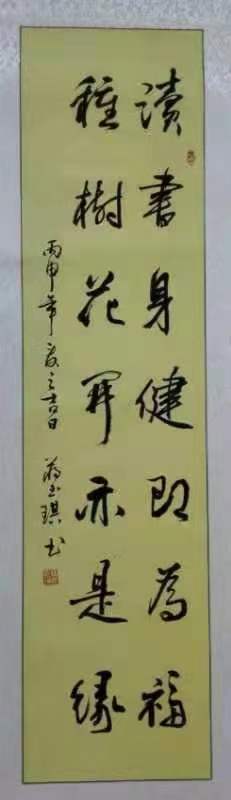 讀書身健即為福
種樹花開亦是緣
丙申年夏之吉日
蔣玉琪书